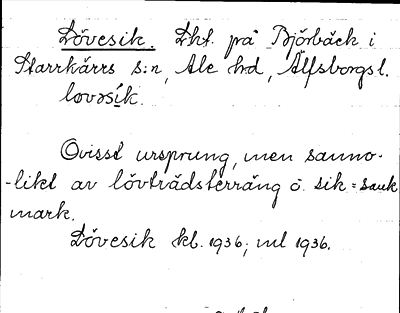 Lövesik. Lht. på Björbäck i
Starrkärrs s:n, Ale hd, Älfsborgs l.
lovəsík.
Ovisst ursprung, men sanno-
-likt av lövträdsterräng o. sik = sank
mark.
Lövesik kb. 1936; ml 1936.